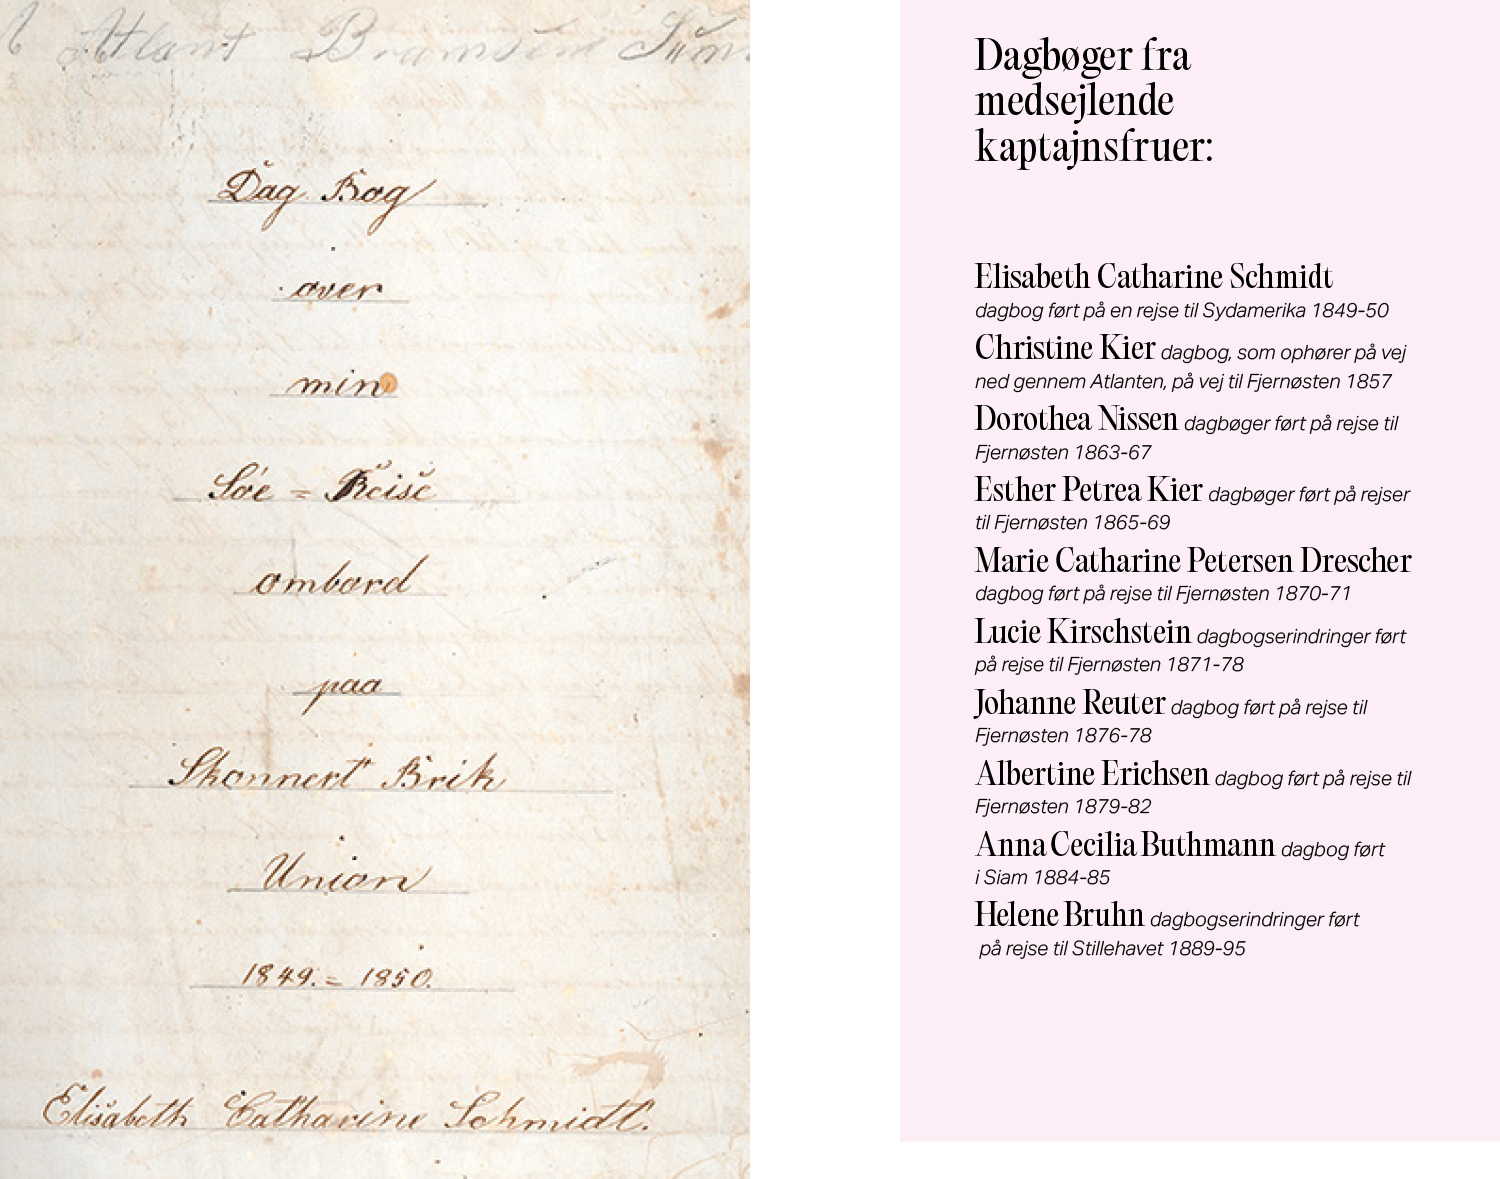 Atlant Bramsens
Dag Bog
over
min
Söe = Reise
ombord
paa
Skonnert Brik
Union
1849. = 1850.
Elisabeth Catharine Schmidt.
Dagbøger fra
medsejlende
kaptajnsfruer:
Elisabeth Catharine Schmidt
dagbog ført på en rejse til Sydamerika 1849-50
Christine Kier dagbog, som ophører på vej
ned gennem Atlanten, på vej til Fjernøsten 1857
Dorothea Nissen dagbøger ført på rejse til
Fjernøsten 1863-67
Esther Petrea Kier dagbøger ført på rejser
til Fjernøsten 1865-69
Marie Catharine Petersen Drescher
dagbog ført på rejse til Fjernøsten 1870-71
Lucie Kirschstein dagbogserindringer ført
på rejse til Fjernøsten 1871-78
Johanne Reuter dagbog ført på rejse til
Fjernøsten 1876-78
Albertine Erichsen dagbog ført på rejse til
Fjernøsten 1879-82
Anna Cecilia Buthmann dagbog ført
i Siam 1884-85
Helene Bruhn dagbogserindringer ført
på rejse til Stillehavet 1889-95